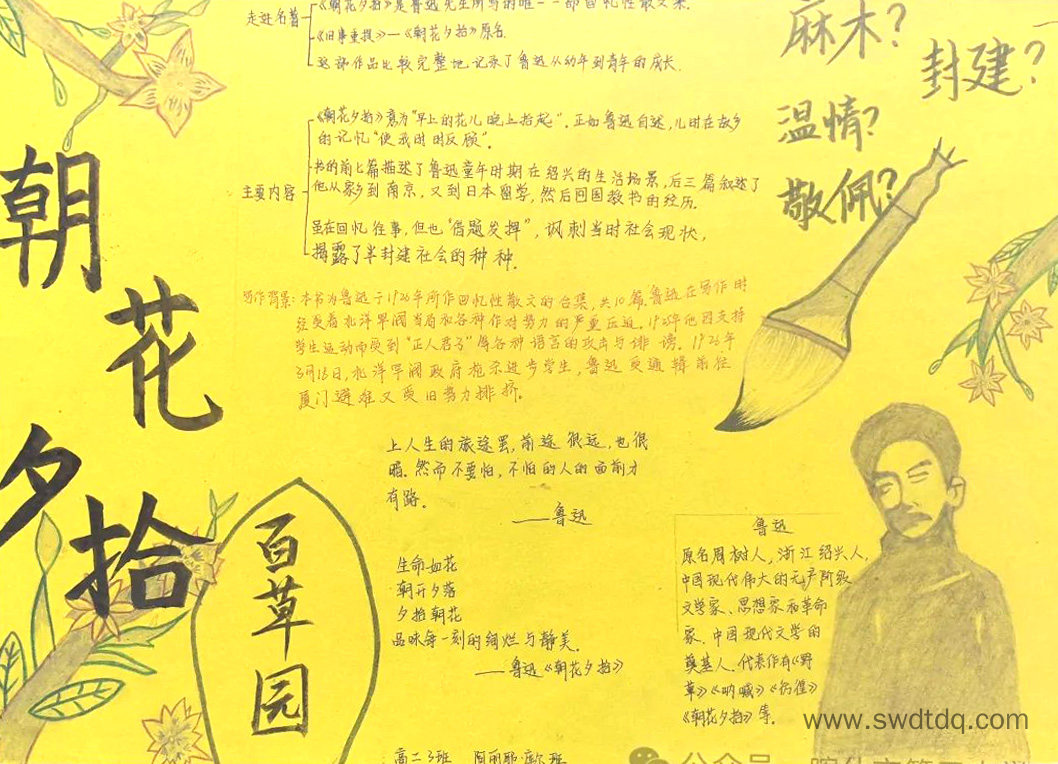 朝花夕拾
走进名著
《朝花夕拾》是鲁迅先生所写的唯一一部回忆性散文集.
《旧事重提》—《朝花夕拾》原名.
这部作品比较完整地记录了鲁迅从幼年到青年的成长.
主要内容
《朝花夕拾》意为"早上的花儿晚上拾起".正如鲁迅自述,儿时在故乡
的记忆"使我时时反顾".
书的前七篇描述了鲁迅童年时期在绍兴的生活场景,后三篇叙述了
他从家乡到南京,又到日本留学,然后回国教书的经历.
虽在回忆往事,但也"借题发挥",讽刺当时社会现状,
揭露了半封建社会的种种.
写作背景:本书为鲁迅于1926年所作回忆性散文的合集,共10篇.鲁迅在写作时
经受着北洋军阀当局和各种作对势力的严重压迫.1925年他因支持
学生运动而受到"正人君子"等各种语言的攻击与诽谤.1926年
3月18日,北洋军阀政府枪杀进步学生,鲁迅受通辑前往
厦门避难又受旧势力排挤.
麻木?
封建?
温情?
敬佩?
上人生的旅途罢,前途很远,也很
暗.然而不要怕,不怕的人的面前才
有路.
——鲁迅
生命如花
朝开夕落
夕拾朝花
品味每一刻的绚烂与静美.
——鲁迅《朝花夕拾》
百草园
鲁迅
原名周树人,浙江绍兴人,
中国现代伟大的无产阶级
文学家、思想家和革命
家.中国现代文学的
奠基人.代表作有《野
草》《呐喊》《彷徨》
《朝花夕拾》等.
高二3班
www.swdtdq.com
公众号